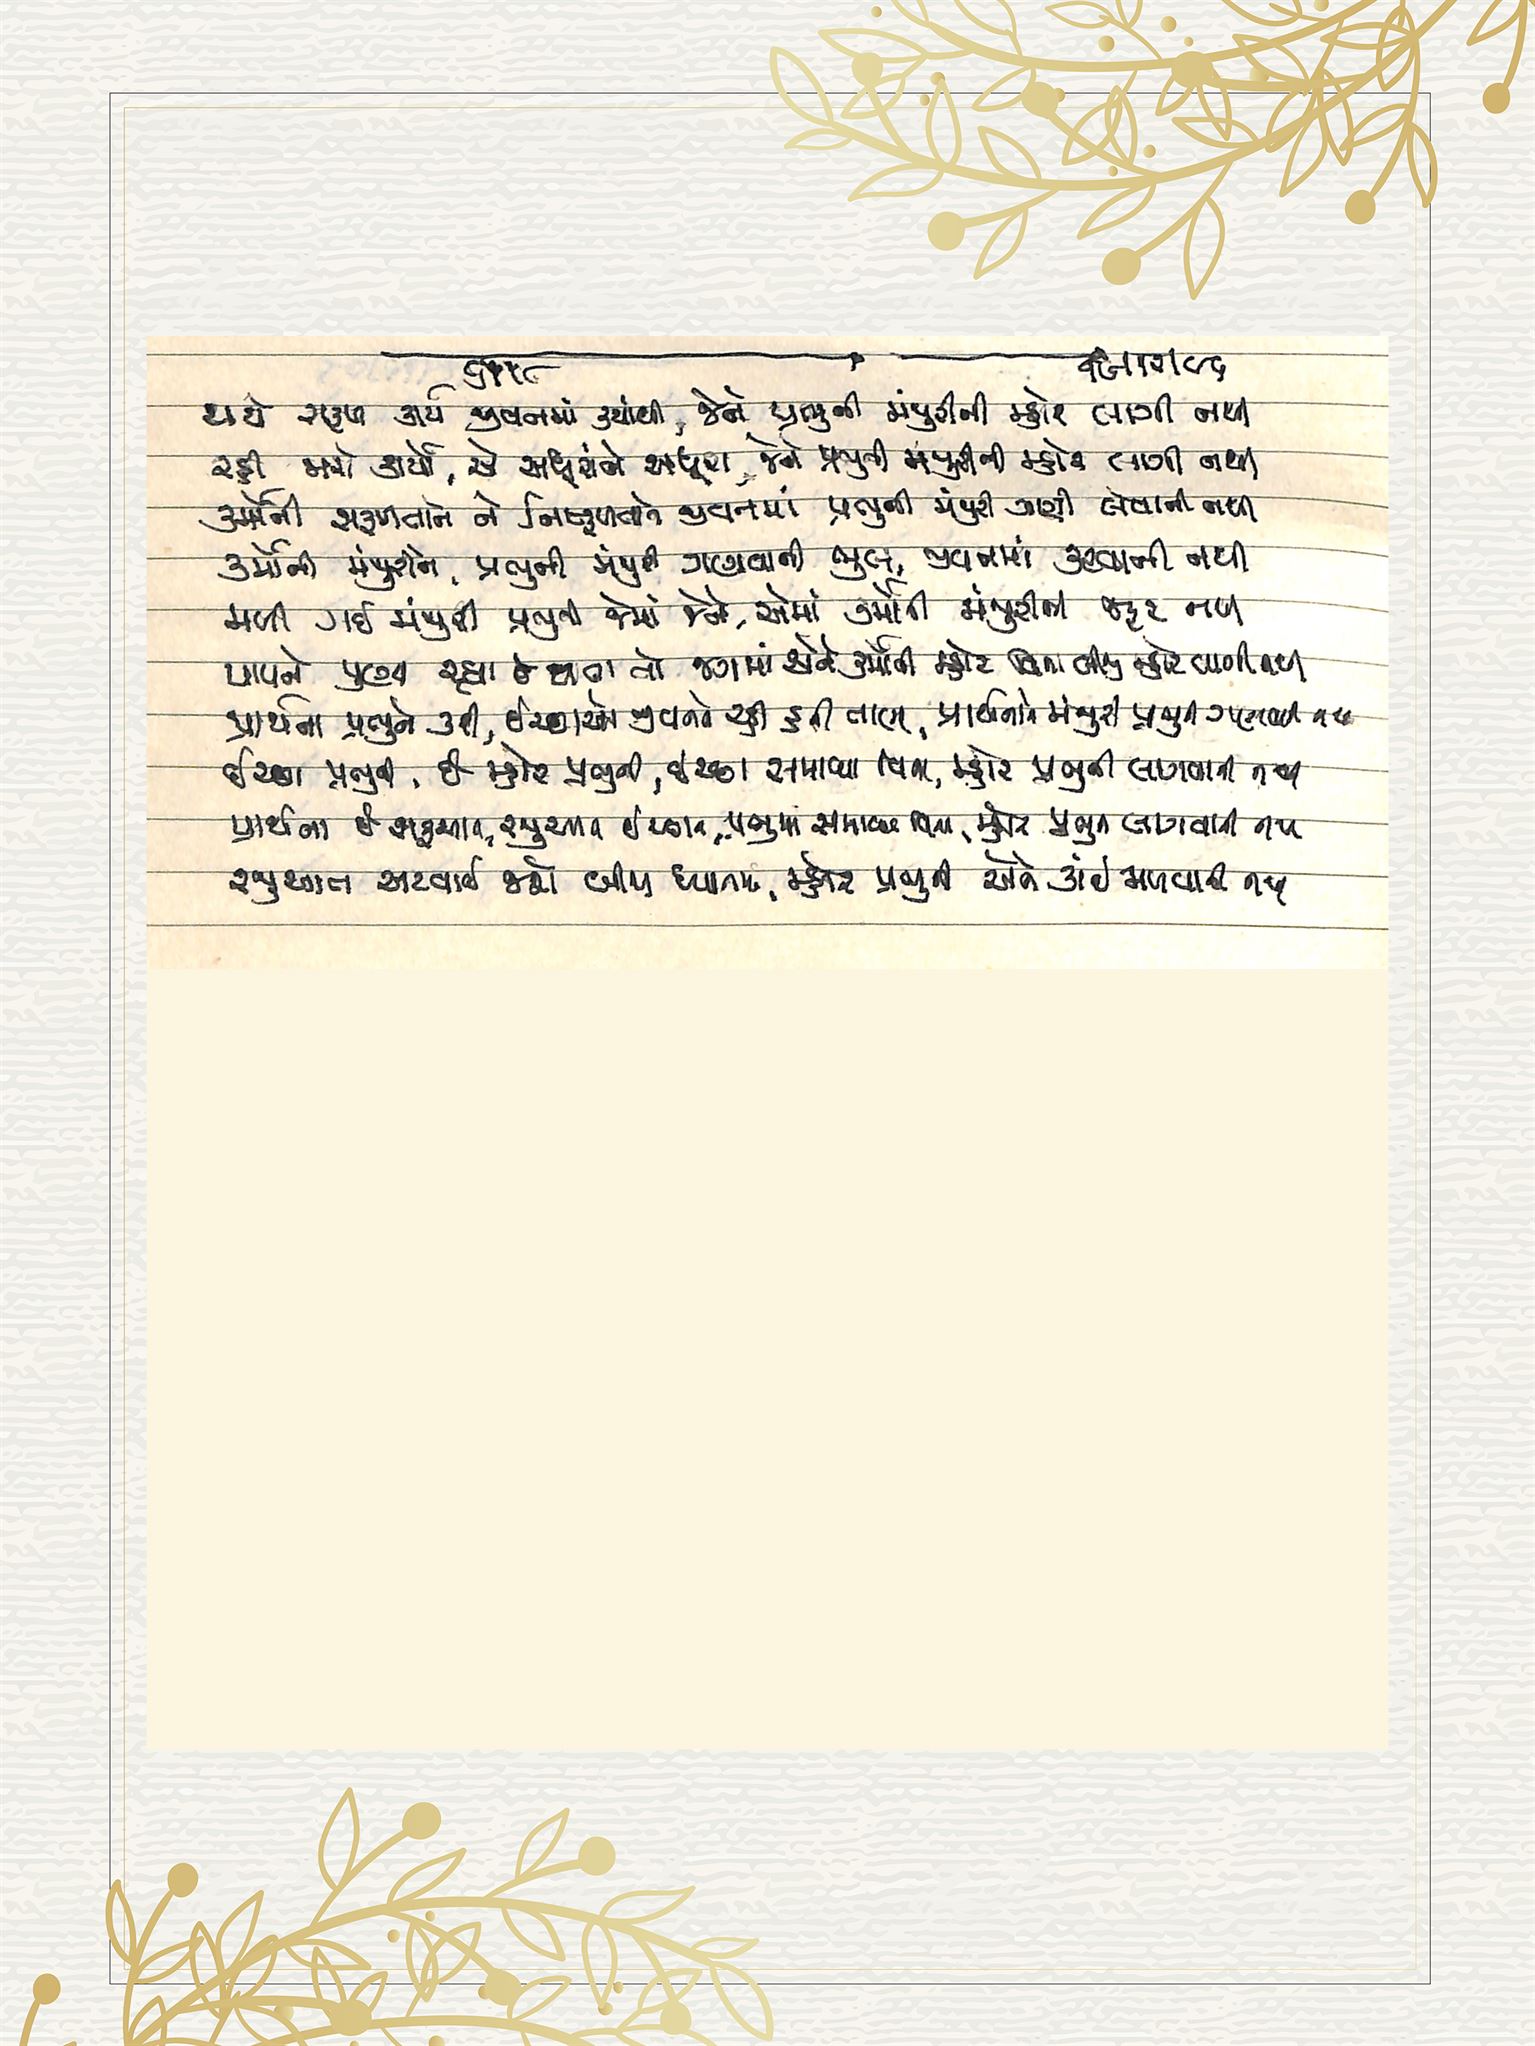 થયે સફળ કાર્ય જીવનમાં ક્યાંથી, જેને પ્રભુની મંજુરીની મ્હોર લાગી નથી
રહી જશે કાર્યો, એ અધૂરાંને અધૂરા, જેને પ્રભુની મંજુરીની મ્હોર લાગી નથી
કર્મોની સફળતાને ને નિષ્ફળતાને જીવનમાં પ્રભુની મંજુરી ગણી લેવાની નથી
કર્મોની મંજુરીને, પ્રભુની મંજુરી ગણવાની ભુલ, જીવનમાં કરવાની નથી
મળી ગઈ મંજુરી પ્રભુની જેમાં જેને, એમાં કર્મોની મંજુરીની જરૂર નથી
પાપને પુણ્ય રહ્યા તો જગમાં એને કર્મોની મ્હોર વિના બીજી મ્હોર લાગી નથી
પ્રાર્થના પ્રભુને કરી, ઈચ્છાઓ જીવનને રહી તાણી, પ્રાર્થનાને મંજુરી પ્રભુની નથી
ઈચ્છા પ્રભુની, છે મ્હોર પ્રભુની, ઈચ્છા સમાવ્યા વિના, મ્હોર પ્રભુની લાગવાની નથી
પ્રાર્થના છે રજુઆત ઈચ્છાની, પ્રભુમાં સમાવ્યા વિના, મ્હોર પ્રભુની લાગવાની નથી
રજુઆત અટવાઈ જાશે બીજા ધ્યાનમાં, મ્હોર પ્રભુની એને કાંઈ મળવાની નથી